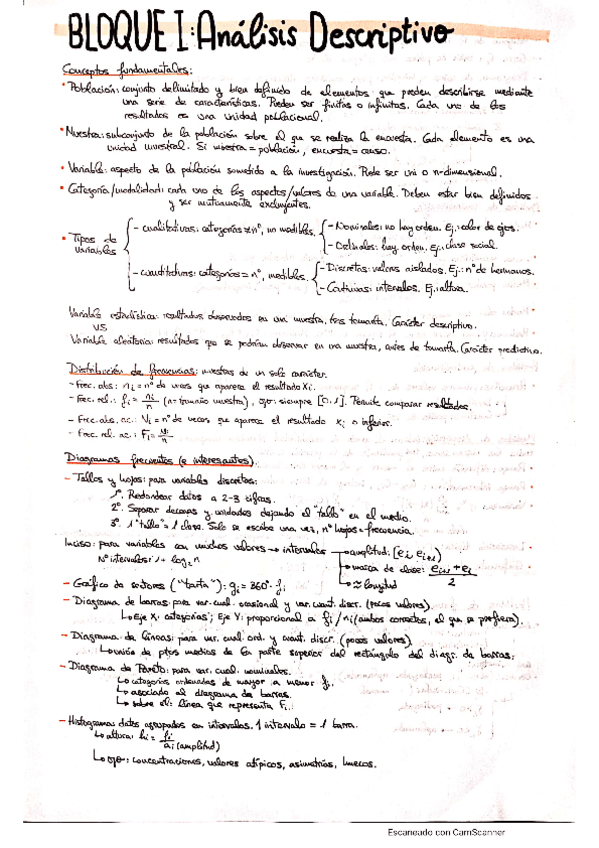 BLOQUE I: Análisis Descriptivo
Conceptos fundamentales:
• Población: conjunto delimitado y bien definido de elementos que pueden describirse mediante
una serie de características. Pueden ser finitas o infinitas. Cada uno de los
resultados es una unidad poblacional.
• Muestra: subconjunto de la población sobre el que se realiza la encuesta. Cada elemento es una
unidad muestral. Si muestra = población, encuesta = censo.
• Variable: aspecto de la población sometido a la investigación. Puede ser uni o n-dimensional.
• Categoría/modalidad: cada uno de los aspectos/valores de una variable. Deben estar bien definidos
y ser mutuamente excluyentes.
• Tipos de variables
- cualitativas: categorías ≠ nº, no medibles.
- Nominales: no hay orden. Ej: color de ojos.
- Ordinales: hay orden. Ej: clase social.
- cuantitativas: categorías = nº, medibles.
- Discretas: valores aislados. Ej: nº de hermanos.
- Continuas: intervalos. Ej: altura.
Variable estadística: resultados observados en una muestra, tras tomarla. Carácter descriptivo.
VS
Variable aleatoria: resultados que se podrían observar en una muestra, antes de tomarla. Carácter predictivo.
Distribución de frecuencias: muestras de un solo carácter.
- Frec. abs: ni = nº de veces que aparece el resultado xi.
- Frec. rel.: fi = ni/n (n = tamaño muestra), ojo: siempre [0,1]. Permite comparar resultados.
- Frec. abs. ac.: Ni = nº de veces que aparece el resultado xi o inferior.
- Frec. rel. ac.: Fi = Ni/n
Diagramas frecuentes (e interesantes)
- Tallos y hojas: para variables discretas:
1º. Redondear datos a 2-3 cifras.
2º. Separar decenas y unidades dejando el "tallo" en el medio.
3º. 1 "tallo" = 1 clase. Solo se escribe una vez, nº hojas = frecuencia.
Inciso: para variables con muchos valores → intervalos → amplitud: [ei, ei+1)
Nº intervalos: 1 + log2 n
→ marca de clase: ei+1 + ei / 2
↳ ≈ longitud
- Gráfico de sectores ("tarta"): gi = 360º · fi
- Diagrama de barras: para var. cual. ocasional y var. cuant. discr. (pocos valores).
↳ Eje X: categorías; Eje Y: proporcional a fi/ni (ambos correctos, el que se prefiera).
- Diagrama de líneas: para var. cual. ord. y cuant. discr. (pocos valores)
↳ unión de ptos medios de la parte superior del rectángulo del diagr. de barras.
- Diagrama de Pareto: para var. cual. nominales.
↳ categorías ordenadas de mayor a menor fi.
↳ asociado al diagrama de barras.
↳ sobre él: línea que representa Fi.
- Histograma: datos agrupados en intervalos. 1 intervalo = 1 barra.
↳ altura: hi = fi/ai (amplitud)
↳ ojo: concentraciones, valores atípicos, asimetrías, huecos.
Escaneado con CamScanner